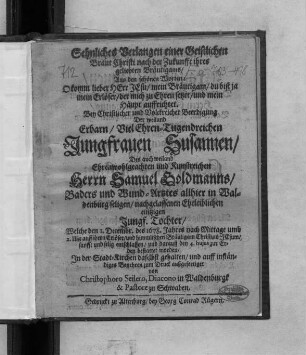 Sehnliches Verlangen einer Geistlichen
Braut Christi nach der Zukunfft ihres
geliebten Bräutigams/
Aus den schönen Worten:
O komm lieber HErr JEsu/ mein Bräutigam/ du bist ja
mein Erlöser/ der mich zu Ehren setzet/ und mein
Häupt auffrichtet.
Bey Christlicher und Volckreicher Beerdigung
Der weiland
Erbarn/ Viel Ehren-Tugendreichen
Jungfrauen Susannen/
Des auch weiland
Ehrnwohlgeachten und Kunstreichen
Herrn Samuel Goldmanns/
Baders und Wund-Artztes allhier in Wal-
denburg seligen/ nachgelassenen Eheleiblichen
eintzigen
Jungf. Tochter/
Welche den 1. Decembr. des 1678. Jahres nach Mittage umb
2. Uhr auff ihren Erlöser/ und himmlischen Bräutigam Christum JEsum/
sanfft und selig entschlaffen/ und darauff den 4. hujus zur Er-
den bestattet worden/
In der Stadt-Kirchen daselbst gehalten/ und auff instän-
diges Begehren zum Druck außgefertiget
von
Christophoro Seilern, Diacono in Waldenburgk
& Pastore zu Schwaben.
Gedruckt zu Altenburg/ bey Georg Conrad Rügern.